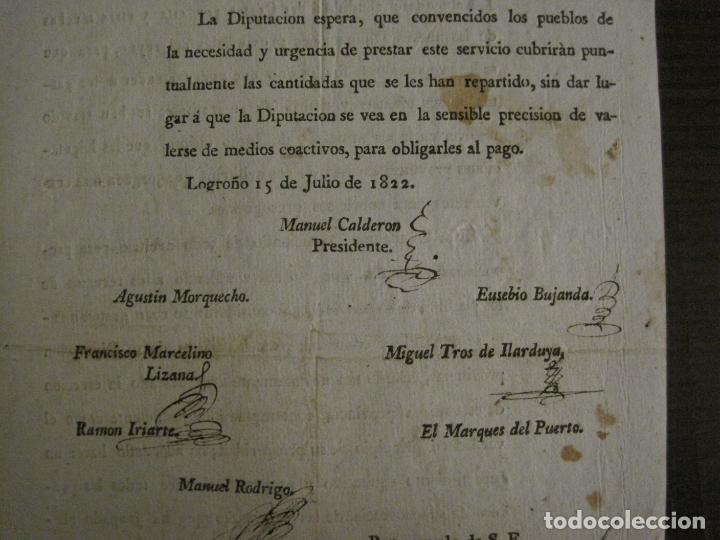 La Diputacion espera, que convencidos los pueblos
de la necesidad y urgencia de prestar este servicio cubriràn pun-
tualmente las cantidadas que se les han repartido, sin dar lu-
gar á que la Diputacion se vea en la sensible precision de va-
lerse de medios coactivos, para obligarles al pago.
Logroño 15 de Julio de 1822.
Manuel Calderon
Presidente.
Agustin Morquecho.
Eusebio Bujanda.
Francisco Marcelino
Lizana.
Miguel Tros de Ilarduya,
Ramon Iriarte.
El Marques del Puerto.
Manuel Rodrigo.
de S. E.
todocoleccion